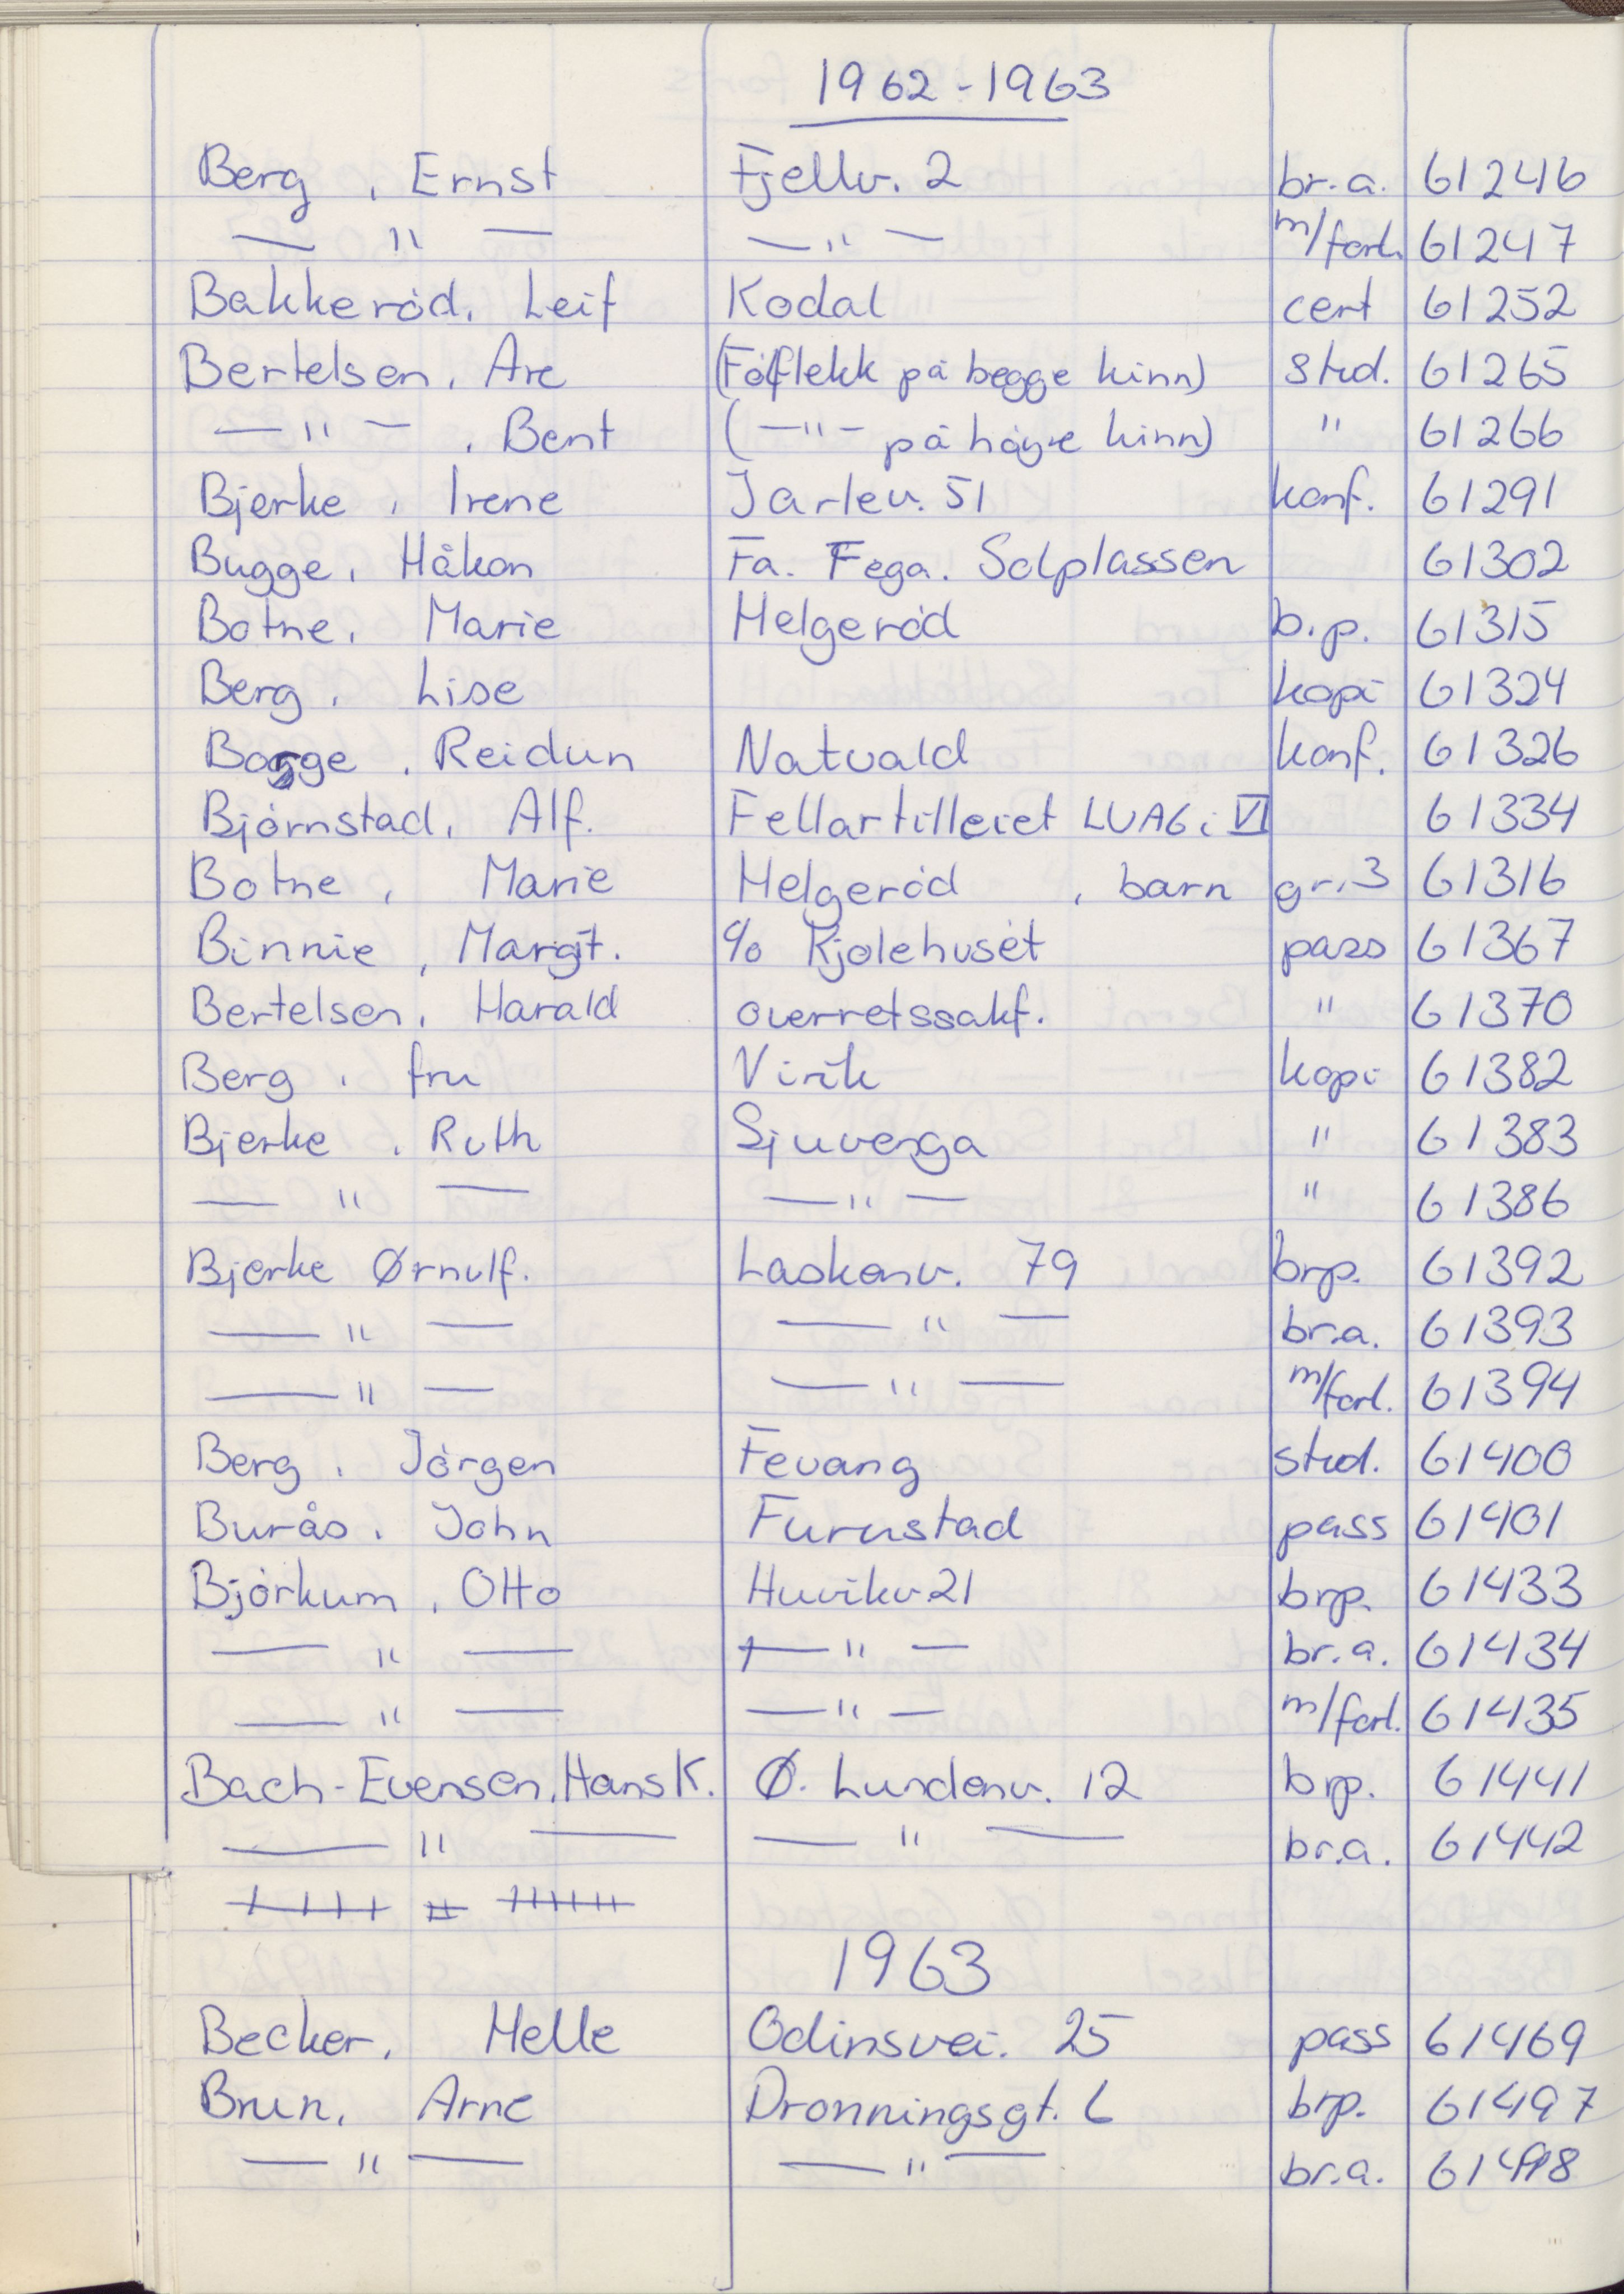 1962-1963
Berg, Ernst Fjellv. 2 br.a. 61246
— " — — " — m/forl. 61247
Bakkeröd, Leif Kodal cert 61252
Bertelsen, Are (Föflekk på begge kinn) stud. 61265
— " —, Bent (— " — på höyre kinn) " 61266
Bjerke, Irene Jarlev. 51 konf. 61291
Bugge, Håkon Fa. Fega. Solplassen 61302
Botne, Marie Helgeröd b.p. 61315
Berg, Lise kopi 61324
Bogge, Reidun Natvald konf. 61326
Björnstad, Alf. Fellartilleiet LUAG i VI 61334
Botne, Marie Helgeröd, barn gr.3 61316
Binnie, Margit. c/o Kjolehuset pass 61367
Bertelsen, Harald overretssakf. " 61370
Berg, fru Virik kopi 61382
Bjerke, Ruth Sjuvenga " 61383
— " — — " — " 61386
Bjerke Ørnulf. Laskenv. 79 brp. 61392
— " — — " — br.a. 61393
— " — — " — m/forl. 61394
Berg, Jörgen Fevang stud. 61400
Burås, John Furustad pass 61401
Björkum, Otto Huvikv.21 brp. 61433
— " — — " — br.a. 61434
— " — — " — m/forl. 61435
Bach-Evensen, Hans K. Ø. Lundenv. 12 brp. 61441
— " — — " — br.a. 61442
— " —
1963
Becker, Helle Odinsvei. 25 pass 61469
Brun, Arne Dronningsgt. 6 brp. 61497
— " — — " — br.a. 61498